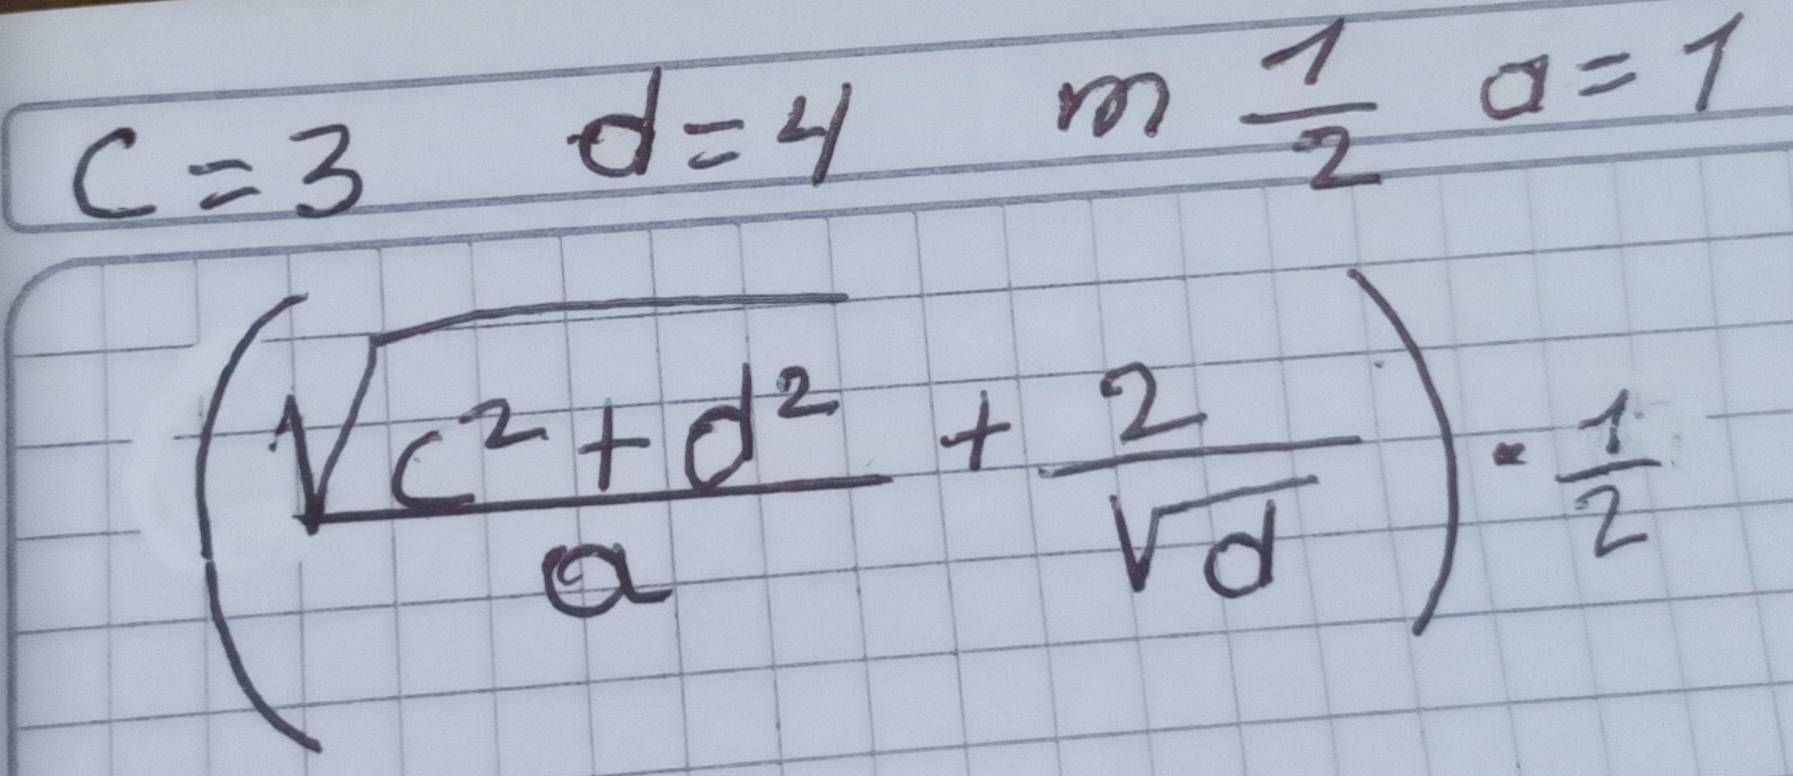 c = 3 d = 4 m 1/2 a = 1
(√(c² + d²)/a + 2/√d) · 1/2